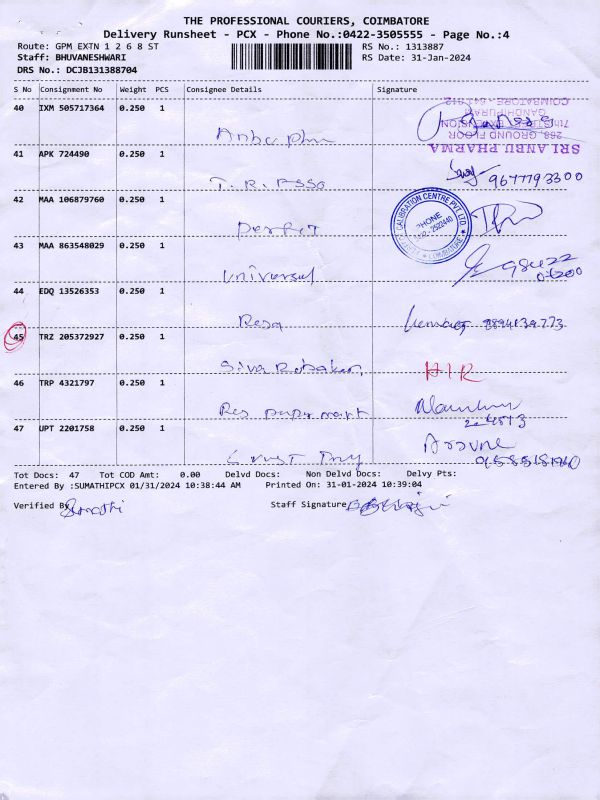 THE PROFESSIONAL COURIERS, COIMBATORE
Delivery Runsheet - PCX - Phone No.:0422-3505555 - Page No.:4
Route: GPM EXTN 1 2 6 8 ST
RS No.: 1313887
Staff: BHUVANESHWARI
RS Date: 31-Jan-2024
DRS No.: DCJB131388704
S No Consignment No Weight PCS Consignee Details Signature
40 IXM 505717364 0.250 1
COIMBATORE - 641 012
GANDHIPURAM
7th STREET EXTENSION
268, GROUND FLOOR
SRI ANBU PHARMA
41 APK 724490 0.250 1
T. R.
9677793300
42 MAA 106879760 0.250 1
CALIBRATION CENTRE PVT LTD
PHONE
COIMBATORE
Perfect
43 MAA 863548029 0.250 1
Universal
44 EDQ 13526353 0.250 1
Resa
45 TRZ 205372927 0.250 1
Siva
HIR
46 TRP 4321797 0.250 1
Res paper mart
47 UPT 2201758 0.250 1
Tot Docs: 47 Tot COD Amt: 0.00 Delvd Docs: Non Delvd Docs: Delvy Pts:
Entered By :SUMATHIPCX 01/31/2024 10:38:44 AM Printed On: 31-01-2024 10:39:04
Verified By Sumathi
Staff Signature